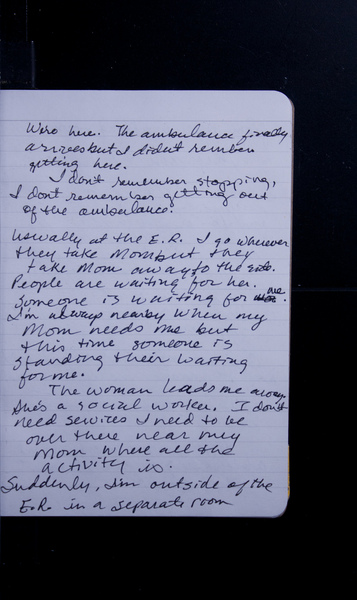 We're here. The ambulance finally
arrives but I didn't remember
getting here.
I don't remember stopping,
I don't remember getting out
of the ambulance.
Usually at the E.R. I go wherever
they take Mom but they
take Mom away to the side.
People are waiting for her.
Someone is waiting for me.
I'm always nearby when my
Mom needs me but
this time someone is
standing their waiting
for me.
The woman leads me away.
She's a social worker. I don't
need services I need to be
over there near my
Mom where all the
activity is.
Suddenly, I'm outside of the
E.R. in a separate room